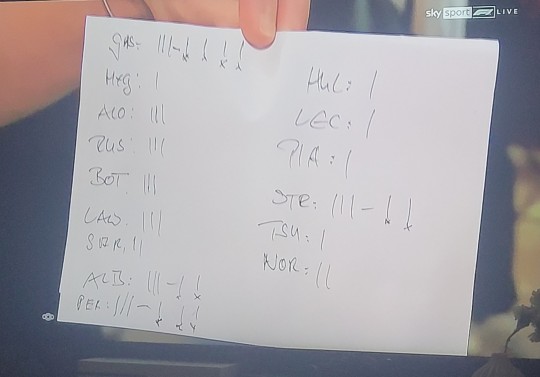 sky sport F1 LIVE
GAS: ||| - | | | |
MAG: |
ALO: |||
RUS: |||
BOT |||
LAW: |||
SAR: ||
ALB: ||| - | |
PER: ||| - | | |
HUL: |
LEC: |
PIA: |
STR: ||| - | |
TSU: |
NOR: ||